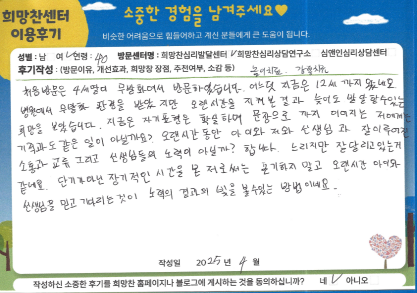 희망찬센터
이용후기
소중한 경험을 남겨주세요♥
비슷한 어려움으로 힘들어하고 계신 분들에게 큰 도움이 됩니다.
성별 : 남 여 ✓ 연령 : 40 방문센터명 : 희망찬심리발달센터 ✓ 희망찬심리상담연구소 심맨인심리상담센터
후기작성 : (방문이유, 개선효과, 희망찬 장점, 추천여부, 소감 등) 놀이치료, 감통치료
처음 방문은 4세때에 무발화여서 방문하였습니다. 어느덧 지금은 12세 까지 왔네요
병원에서 무발화 판정을 받았지만 오랜시간을 지켜본 결과 늦어도 발달할수있는
희망을 보았습니다. 지금은 자기표현을 확실하며 문장으로 까지 이어지는 저에게는
기적과도 같은 일이 아닐까요? 오랜시간동안 아이와 저와 선생님과 잘 이루어진
소통과 교육 그리고 선생님들의 노력이 아닐까? 합니다. 느리지만 잘 달리고있는거
같네요. 단기가아닌 장기적인 시간을 본 저로써는 포기하지 말고 오랜시간 아이와
선생님을 믿고 기다리는것이 노력의 결과의 빛을 볼수있는 방법이네요.
작성일 2025년 4월
작성하신 소중한 후기를 희망찬 홈페이지나 블로그에 게시하는 것을 동의하십니까? 네 ✓ 아니오